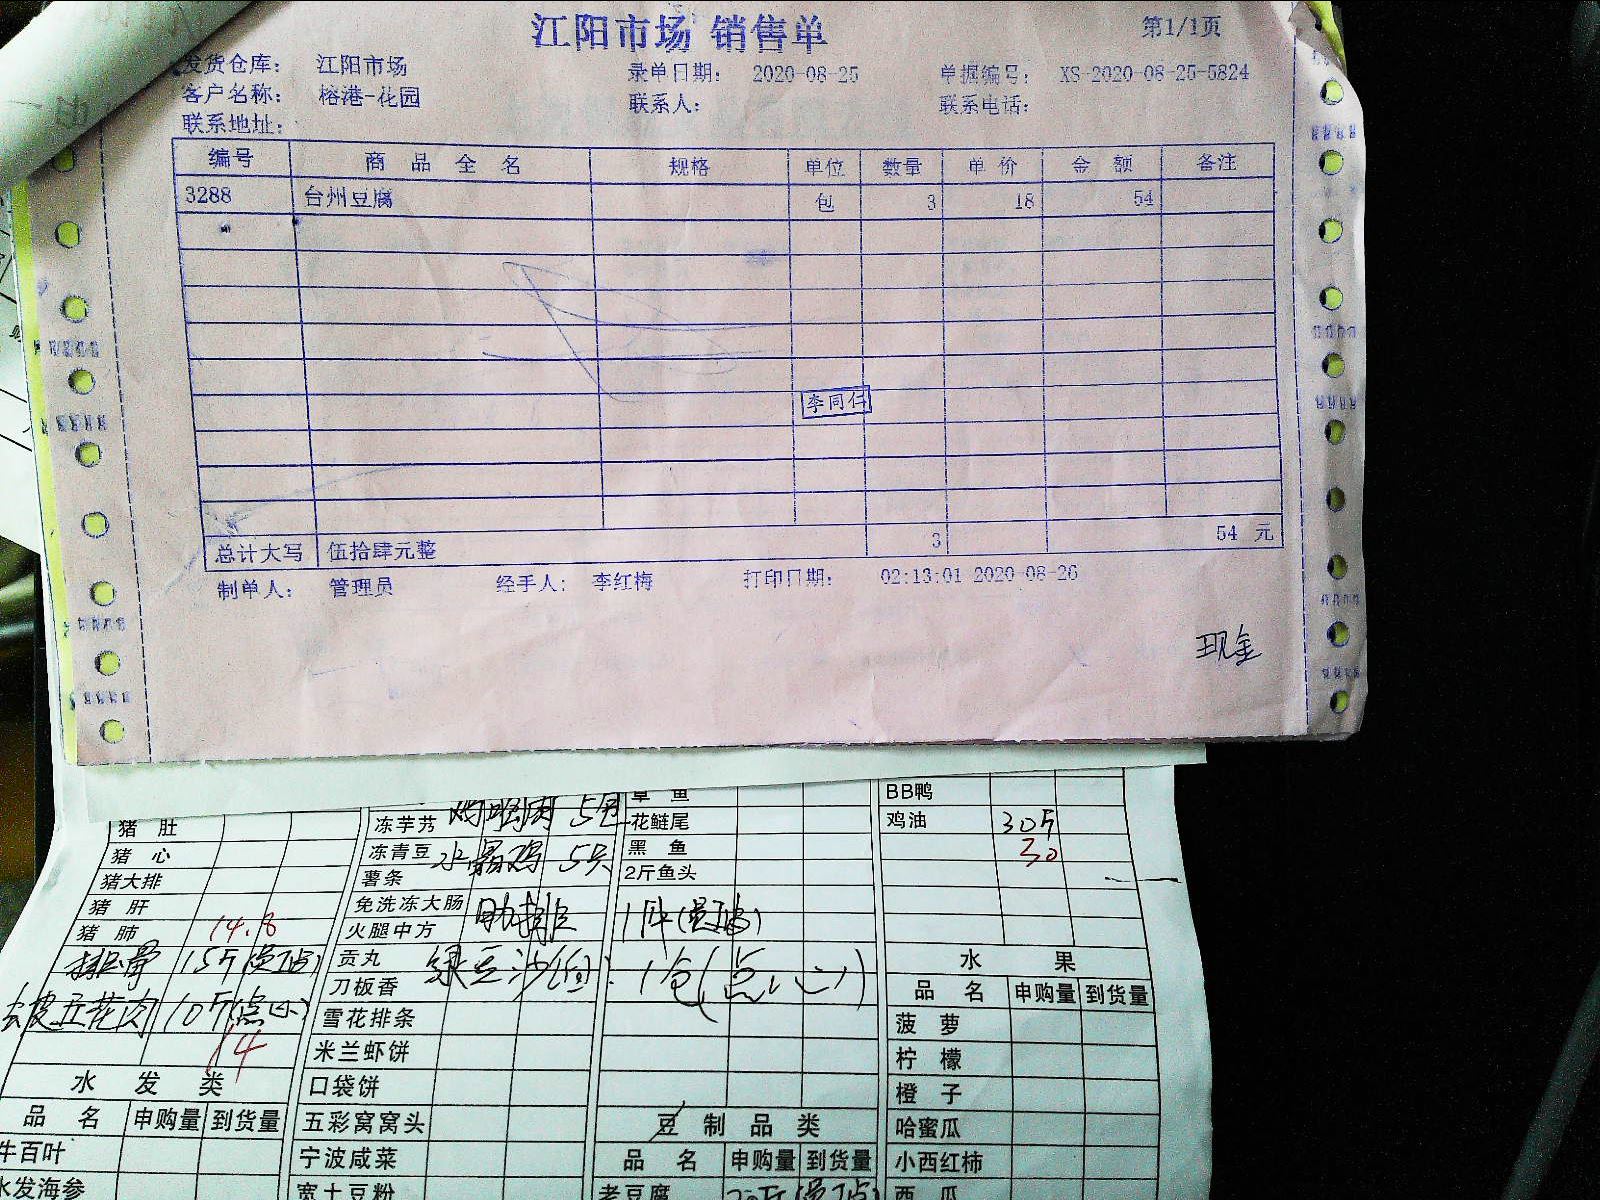 江阳市场 销售单
第1/1页
发货仓库： 江阳市场 录单日期： 2020-08-25 单据编号： XS-2020-08-25-5824
客户名称： 榕港-花园 联系人： 联系电话：
联系地址：
编号 商品全名 规格 单位 数量 单价 金额 备注
3288 台州豆腐 包 3 18 54
李同仁
总计大写 伍拾肆元整 3 54 元
制单人： 管理员 经手人： 李红梅 打印日期： 02:13:01 2020-08-26
现金
猪肚
猪心
猪大排
猪肝
猪肺 14.8
15斤
去皮五花肉 10斤(点心)
14
水发类
品名 申购量 到货量
牛百叶
水发海参
冻芋艿
冻青豆 水晶鸡 5只
薯条
免洗冻大肠
火腿中方
贡丸 绿豆沙
刀板香 (点心)
雪花排条
米兰虾饼
口袋饼
五彩窝窝头
宁波咸菜
宽土豆粉
草鱼
花鲢尾
黑鱼
2斤鱼头
豆制品类
品名 申购量 到货量
老豆腐
BB鸭
鸡油 30斤
30
水果
品名 申购量 到货量
菠萝
柠檬
橙子
哈蜜瓜
小西红柿
西瓜